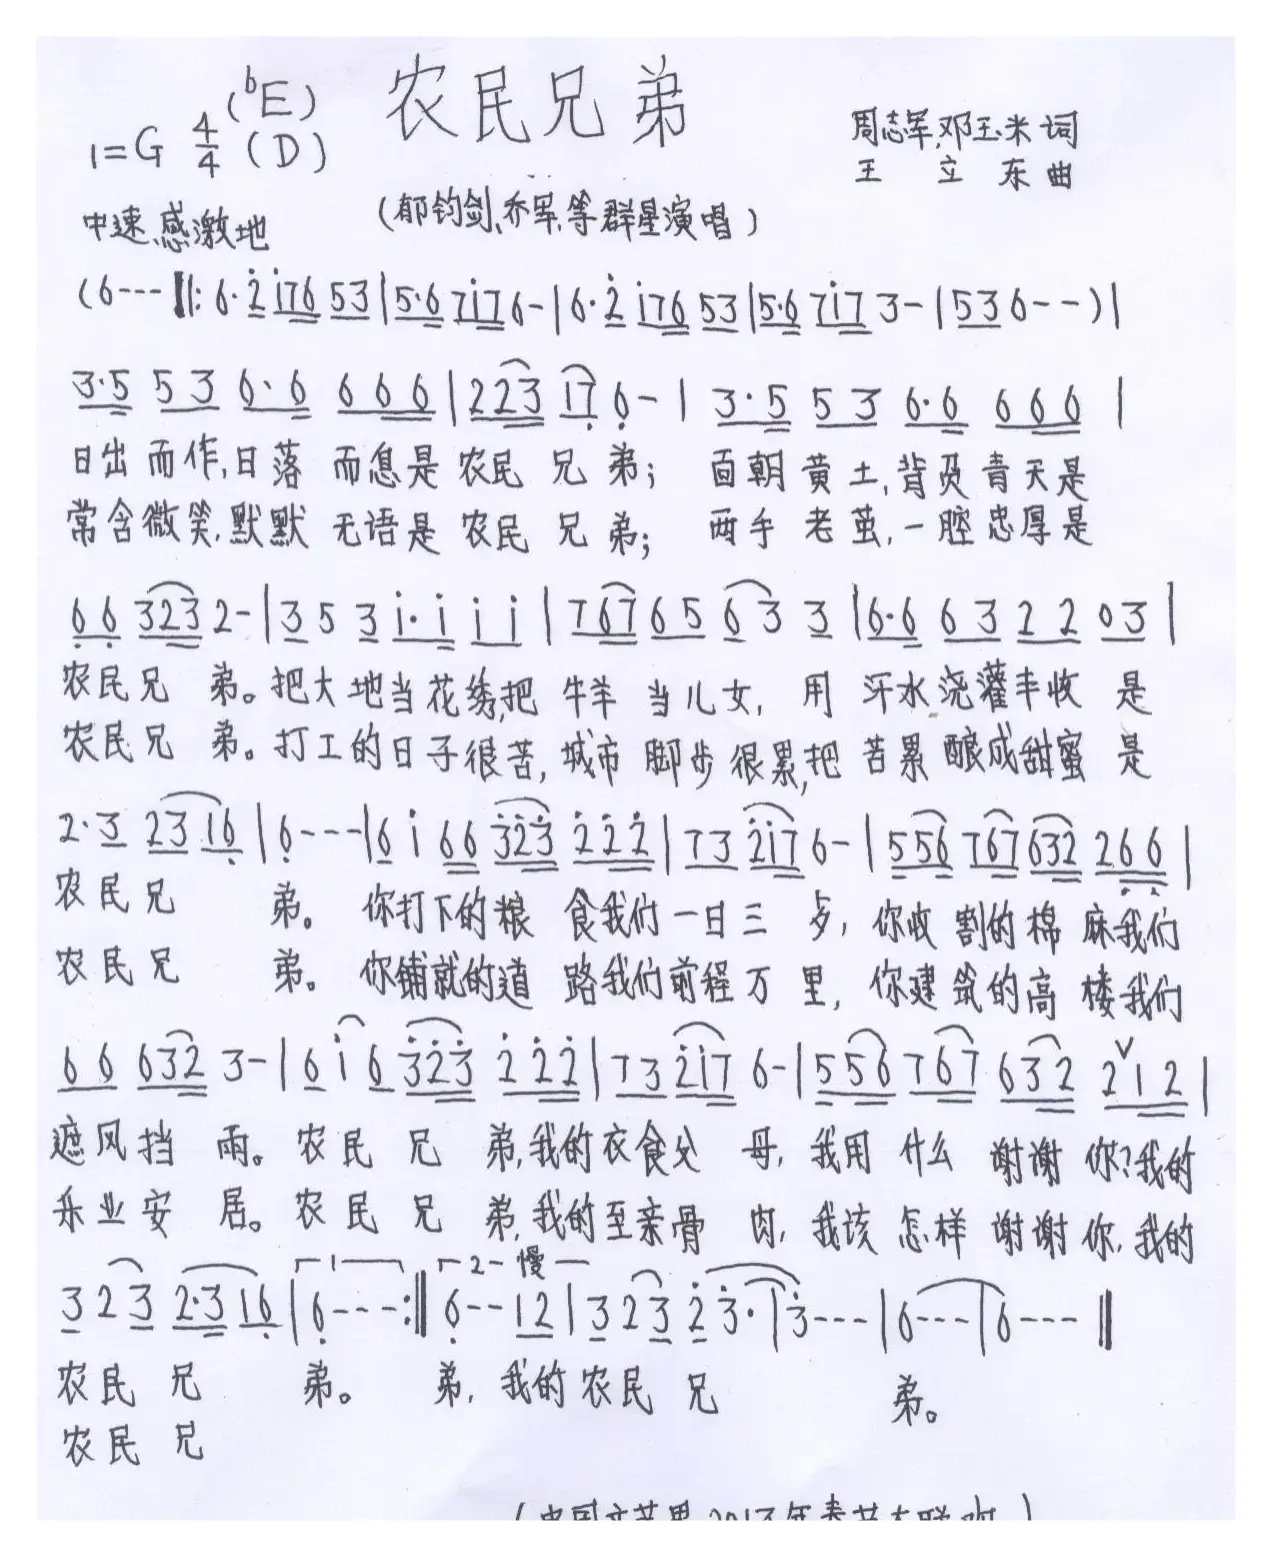 农民兄弟
1=G 4/4 (ᵇE) (D)
周志军、邓玉米词
王立东曲
中速、感激地
(郁钧剑、乔军、等群星演唱)
(6---‖:6·2̇ 1̇76 53|5·6 71̇7 6-|6·2̇ 1̇76 53|5·6 71̇7 3-|536--)|
3·5 53 6·6 666|223 17 6-|3·5 53 6·6 666|
日出而作,日落而息是农民兄弟;面朝黄土,背及青天是
常含微笑,默默无语是农民兄弟;两手老茧,一腔忠厚是
66 323 2-|353 1̇·1̇ 1̇1̇|767 65 63 3|6·6 63 22 03|
农民兄弟。把大地当花绣,把牛羊当儿女,用汗水浇灌丰收是
农民兄弟。打工的日子很苦,城市脚步很累,把苦累酿成甜蜜是
2·3 23 16|6---|61̇ 66 3̇2̇3̇ 2̇2̇2̇|73 2̇1̇7 6-|556 767 632 266|
农民兄弟。你打下的粮食我们一日三歺,你收割的棉麻我们
农民兄弟。你铺就的道路我们前程万里,你建筑的高楼我们
66 632 3-|61̇6 3̇2̇3̇ 2̇2̇2̇|73 2̇1̇7 6-|556 767 632 2ᵛ12|
遮风挡雨。农民兄弟,我的衣食父母,我用什么谢谢你?我的
乐业安居。农民兄弟,我的至亲骨肉,我该怎样谢谢你,我的
1 2 慢
323 2·3 16|6---:‖6--12|323 2̇3̇·|3̇---|6---|6---‖
农民兄弟。弟,我的农民兄弟。
农民兄
(中国文艺界2013年春节大联欢)